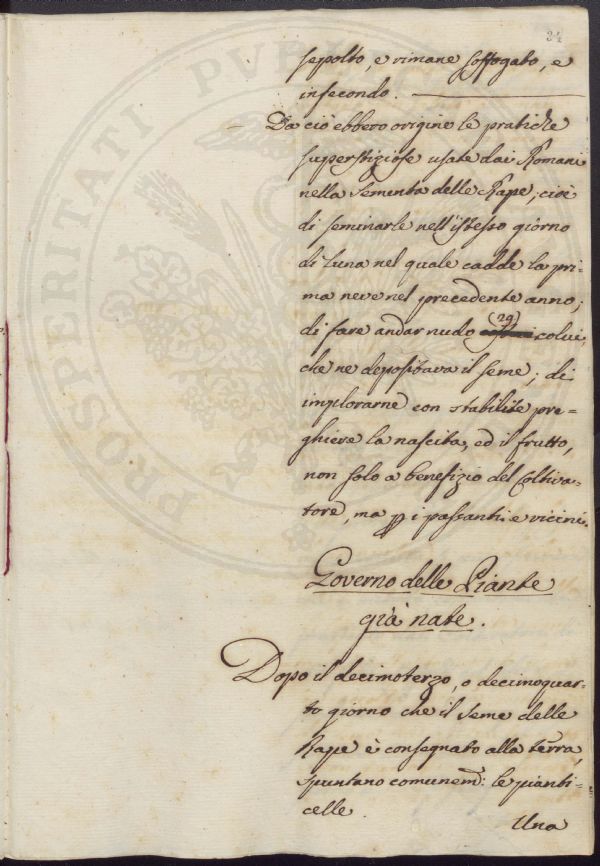 34
sepolto, e rimane soffogato, e
infecondo.
Da ciò ebbero origine le pratiche
superstiziose usate dai Romani
nella Sementa delle Rape; cioè
di seminarle nell'istesso giorno
di Luna nel quale cadde la pri=
ma neve nel precedente anno;
di fare andar nudo (29) colui,
che ne depositava il seme; di
implorarne con stabilite pre=
ghiere la nascita, ed il frutto,
non solo a benefizio del Coltiva=
tore, ma p i passanti e vicini.
Governo delle Piante
già nate.
Dopo il decimoterzo, o decimoquar=
to giorno che il seme delle
Rape è consegnato alla terra,
spuntano comunem: le pianti=
celle.
Una
PROSPERITATI PUBLICAE